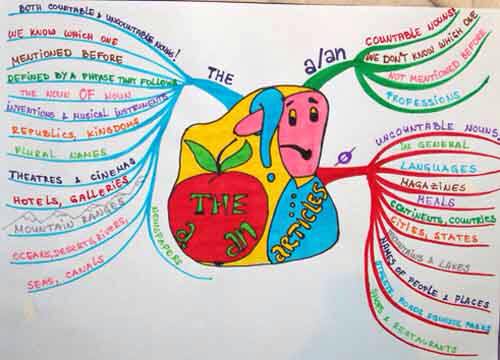 THE
BOTH COUNTABLE & UNCOUNTABLE NOUNS!
WE KNOW WHICH ONE
MENTIONED BEFORE
DEFINED BY A PHRASE THAT FOLLOWS
THE NOUN OF NOUN
INVENTIONS & MUSICAL INSTRUMENTS
REPUBLICS, KINGDOMS
PLURAL NAMES
THEATRES & CINEMAS
HOTELS, GALLERIES
MOUNTAIN RANGES
OCEANS, DESERTS, RIVERS,
SEAS, CANALS
NEWSPAPERS
a/an
COUNTABLE NOUNS!
WE DON'T KNOW WHICH ONE
NOT MENTIONED BEFORE
PROFESSIONS
THE
a an
ARTICLES
Ø
UNCOUNTABLE NOUNS!
IN GENERAL
LANGUAGES
MAGAZINES
MEALS
CONTINENTS, COUNTRIES
CITIES, STATES
MOUNTAINS & LAKES
NAMES OF PEOPLE & PLACES
STREETS, ROADS, SQUARES, PARKS
SHOPS & RESTAURANTS